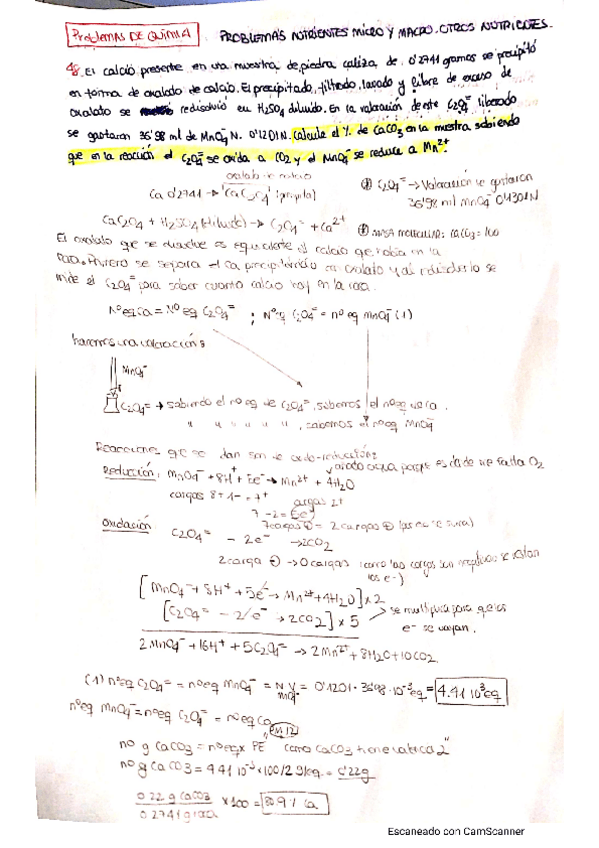 Problemas DE QUÍMICA PROBLEMAS NUTRIENTES MICRO Y MACRO. OTROS NUTRIENTES.
El calcio presente en una muestra de piedra caliza de 0'2741 gramos se precipitó
en forma de oxalato de calcio. El precipitado, filtrado, lavado y libre de exceso de
oxalato se redisolvió en H2SO4 diluido. En la valoración de este C2O4= liberado
se gastaron 36'98 ml de MnO4- N. 0'1201N. Calcule el % de CaCO3 en la muestra sabiendo
que en la reacción el C2O4= se oxida a CO2 y el MnO4- se reduce a Mn2+
Ca 0'2741 → CaC2O4
C2O4= → Valoración se gastaron
36'98 ml MnO4-
CaC2O4 + H2SO4 (diluido) → C2O4= + Ca2+
CaCO3 = 100
El oxalato que se disuelve es equivalente al calcio que había en la
se separa el Ca
C2O4= para saber cuanto calcio hay en la
NºeqCa = Nº eq C2O4= ; Nºeq C2O4= = nº eq MnO4- (1)
haremos una valoración:
MnO4-
C2O4= → sabiendo el nº eq de C2O4=, sabemos el nº eq
" " " " ", sabemos el nº eq MnO4-
Reacciones que se dan son de oxido-reducción:
añado agua porque es donde me falta O2
Reducción: MnO4- + 8H+ + 5e- → Mn2+ + 4H2O
cargas 8+ 1- = 7+ cargas 2+
7 - 2 = 5e-
7 cargas + = 2 cargas +
Oxidación C2O4= - 2e- → 2CO2
2 carga - → 0 cargas (como las cargas son negativas se restan
los e-)
[MnO4- + 8H+ + 5e- → Mn2+ + 4H2O] x 2
[C2O4= - 2e- → 2CO2] x 5 se multiplica para que los
e- se vayan.
2MnO4- + 16H+ + 5C2O4= → 2Mn2+ + 8H2O + 10CO2
(1) nºeq C2O4= = nºeq MnO4- = N V = 0'1201 · 36'98 · 10-3 eq = 4.41 10-3 eq
MnO4-
nºeq MnO4- = nºeq C2O4= = nºeq Ca
nº g CaCO3 = nºeq x PE como CaCO3 tiene valencia 2
nº g CaCO3 = 4.41 10-3 x 100/2 g/eq = 0'22g
0.22 g CaCO3 x 100 =
0.2741 g
Escaneado con CamScanner